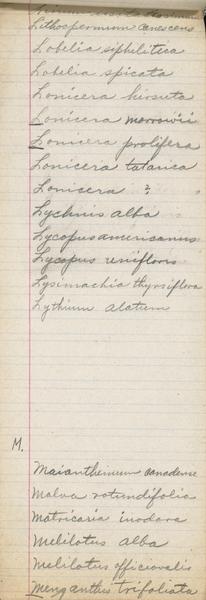 Lithospermum canescens
Lobelia siphilitica
Lobelia spicata
Lonicera hirsuta
Lonicera morrowii
Lonicera prolifera
Lonicera tatarica
Lonicera ?
Lychnis alba
Lycopus americanus
Lycopus uniflorus
Lysimachia thyrsiflora
Lythrum alatum
M.
Maianthemum canadense
Malva rotundifolia
Matricaria inodora
Melilotus alba
Melilotus officinalis
Menyanthes trifoliata